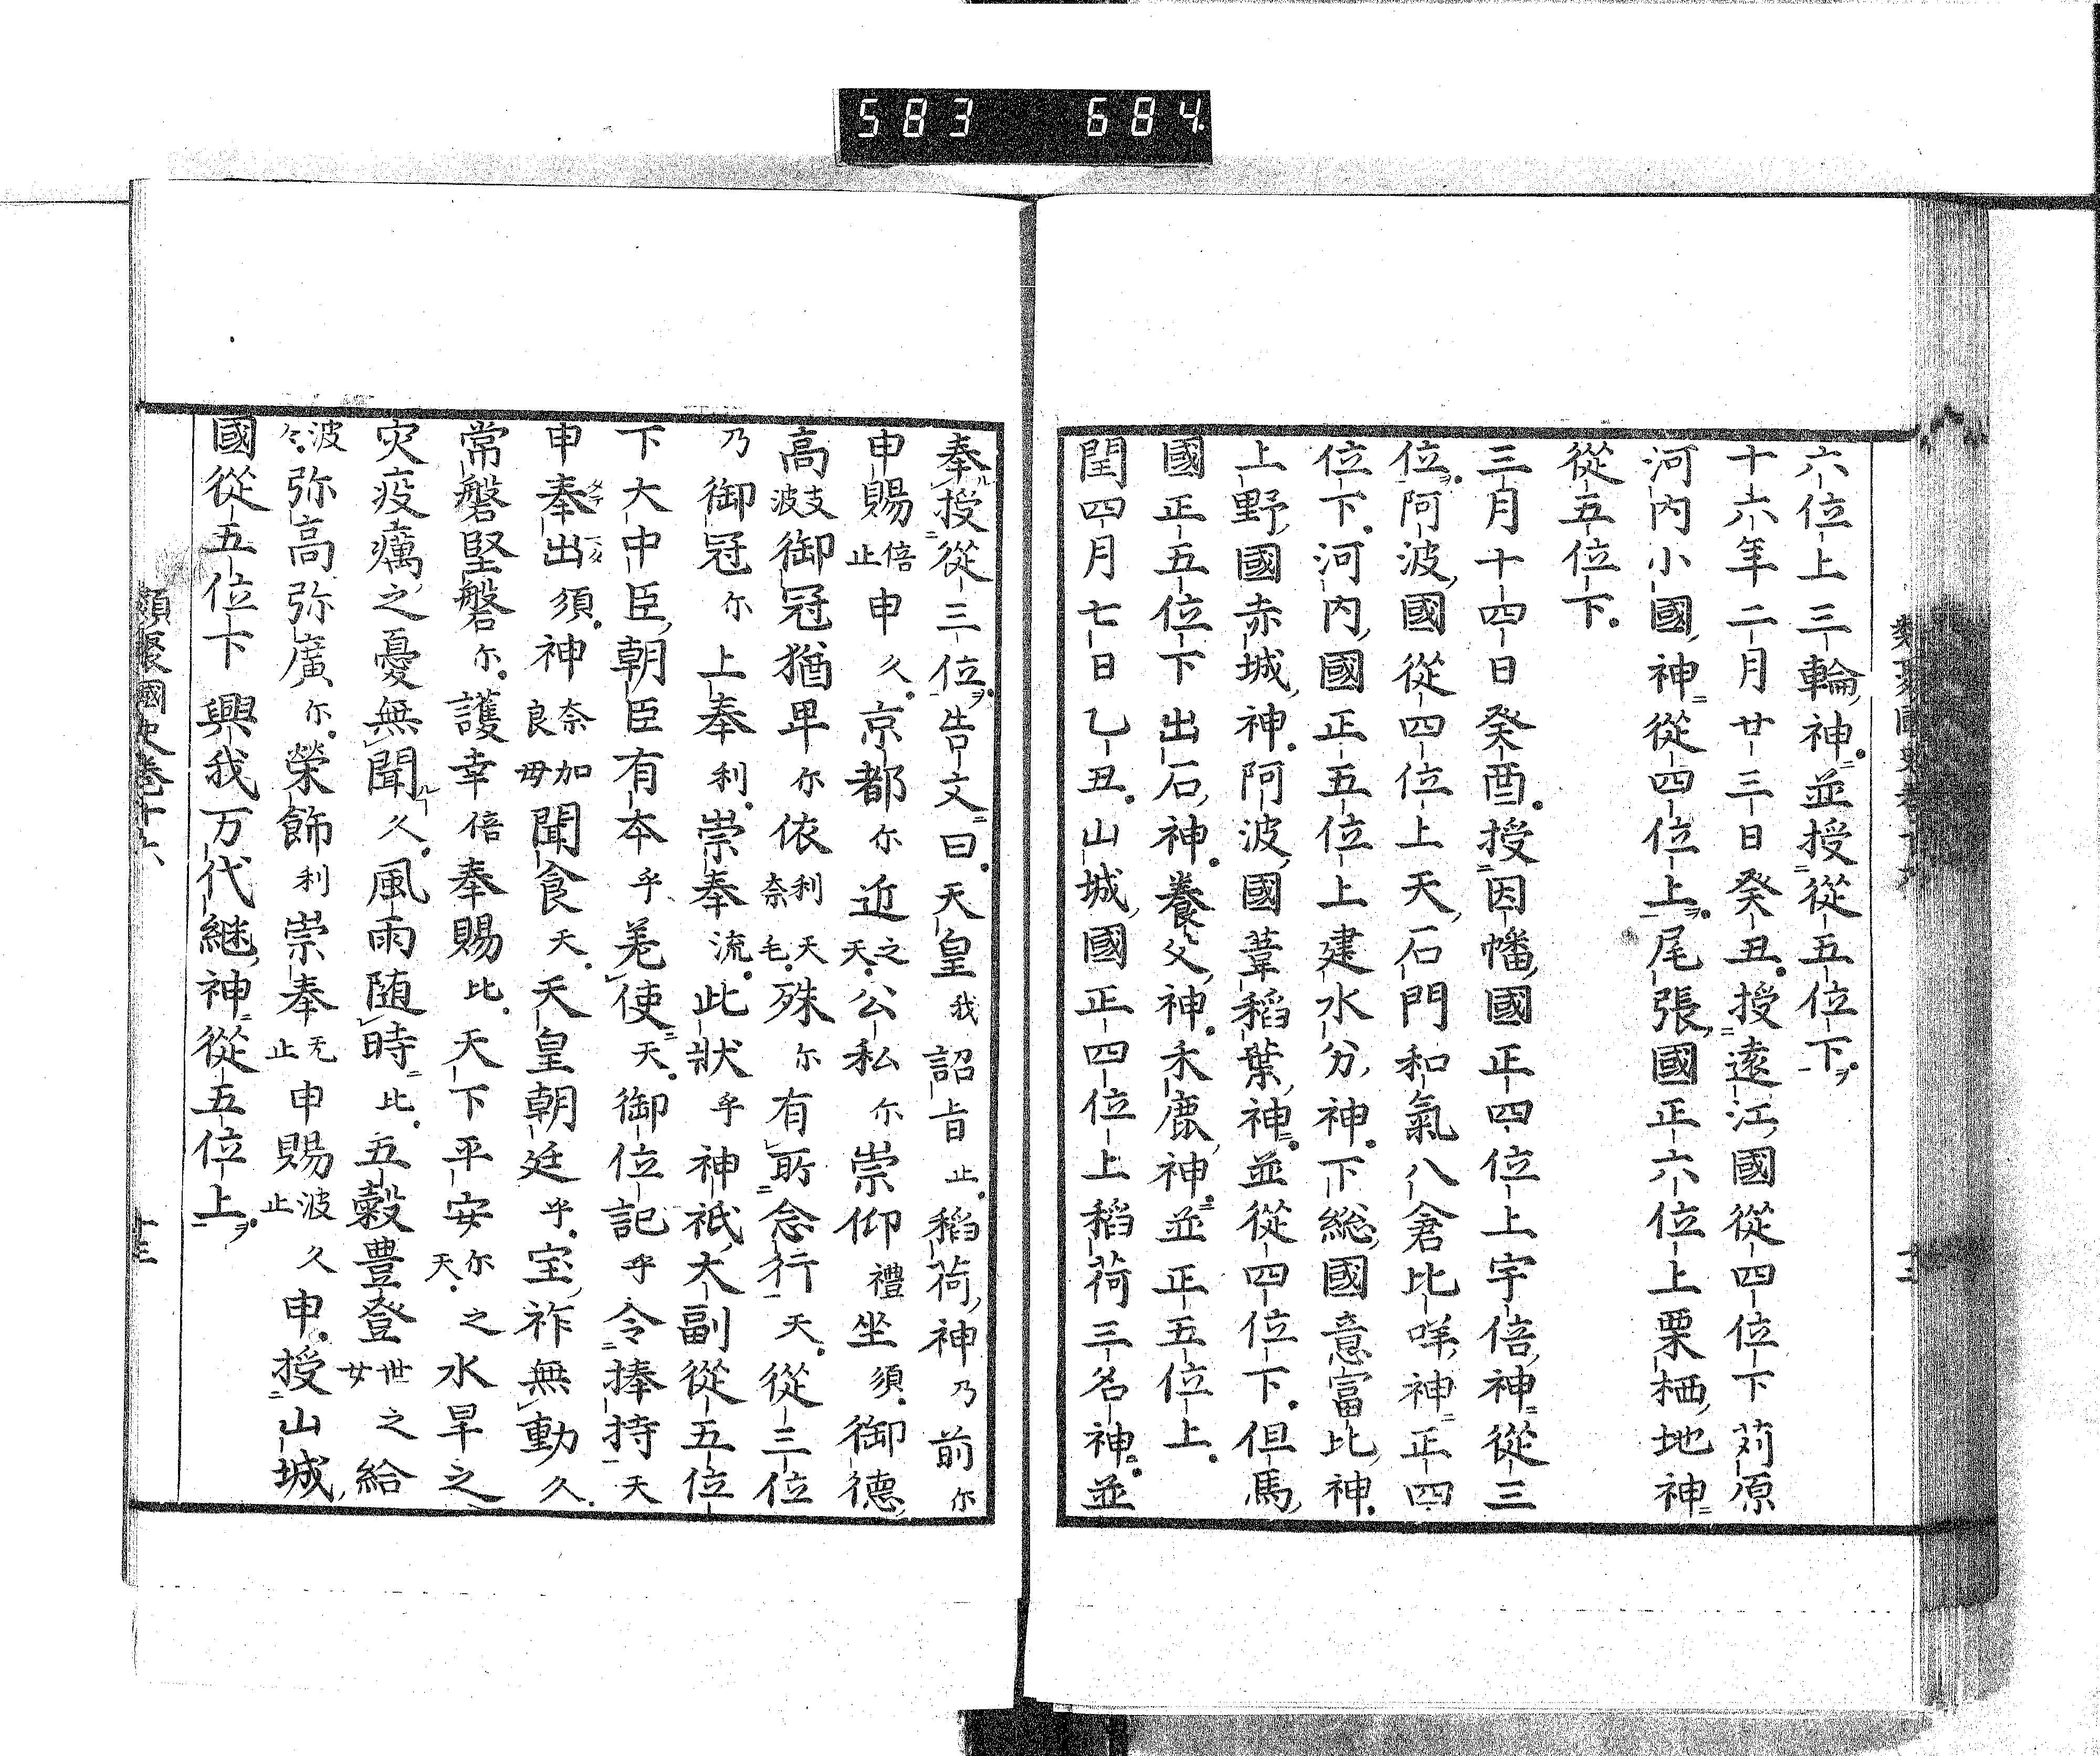 583 684
類聚國史卷十六
六位上三輪神。並授從五位下。
十六年二月廿三日癸丑。授遠江國從四位下苅原
河内小國神從四位上。尾張國正六位上栗栖地神
從五位下。
三月十四日癸酉。授因幡國正四位上宇倍神從三
位。阿波國從四位上天石門和氣八倉比咩神正四
位下。河内國正五位上建水分神。下総國意富比神。
上野國赤城神。阿波國葦稻葉神。並從四位下。但馬
國正五位下出石神。養父神。禾鹿神。並正五位上。
閏四月七日乙丑。山城國正四位上稻荷三名神。並
奉授從三位。告文曰。天皇我詔旨止。稻荷神乃前尓
申賜倍止申久。京都尓近之天。公私尓崇仰禮坐須。御德
高支波御冠猶卑尓依利奈天毛。殊尓有所念行天。從三位
乃御冠尓上奉利。崇奉流。此狀乎神祇大副從五位
下大中臣朝臣有本乎差使天。御位記乎令捧持天
申奉出須。神奈良加毋聞食天。天皇朝廷乎。宝祚無動久。
常磐堅磐尓。護幸倍奉賜比。天下平安尓天。之水旱之
灾疫癘之憂無聞久。風雨随時比。五穀豊登世女之給
波々。弥高弥廣尓。榮飾利崇奉无止申賜波止久申。授山城
國從五位下興我万代継神從五位上。
類聚國史卷十六
十三